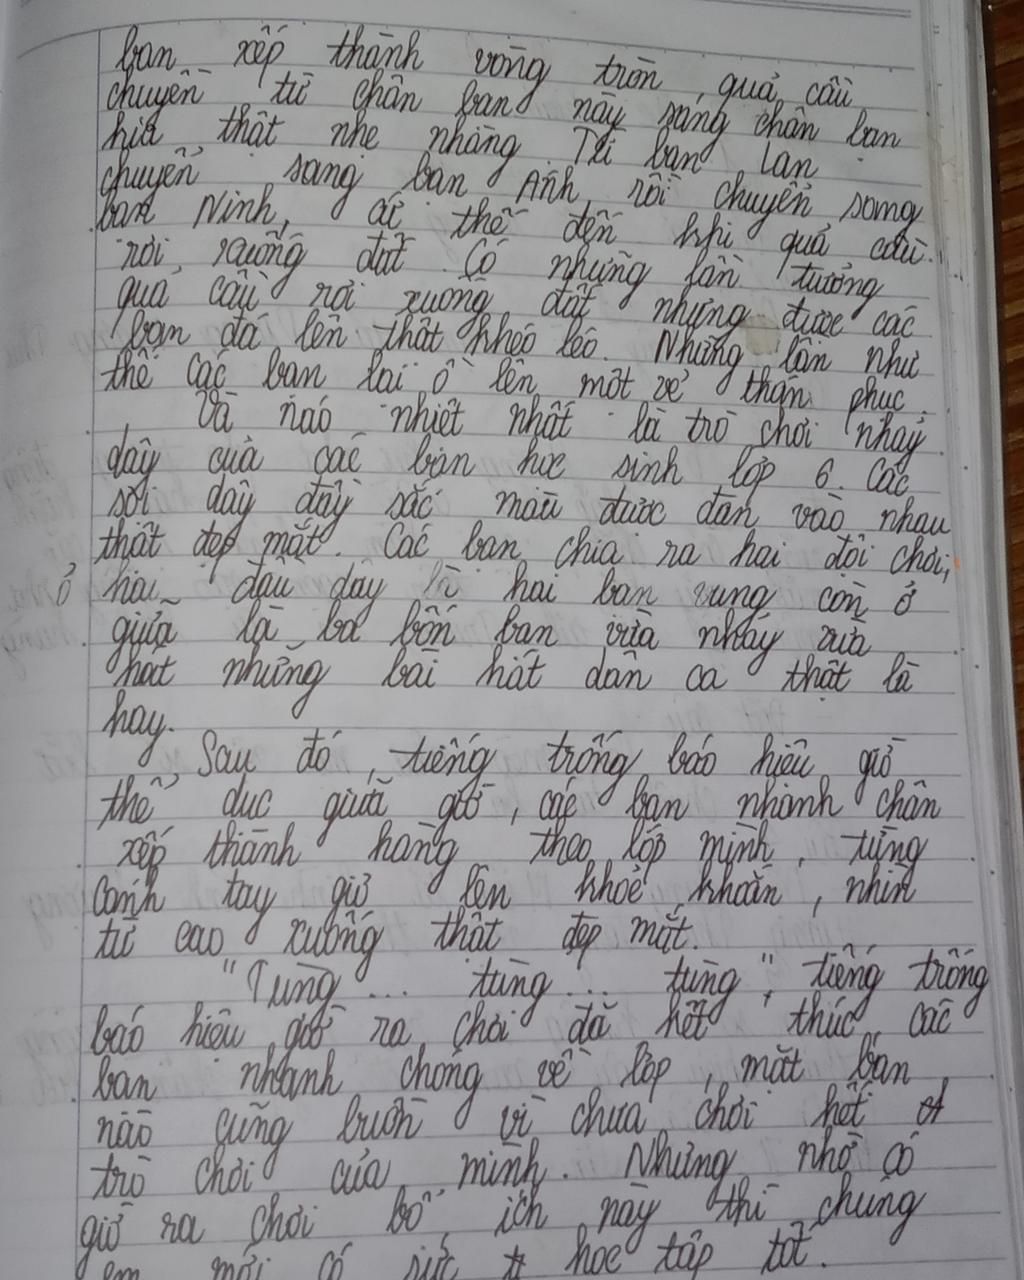 bạn xếp thành vòng tròn, quả cầu
chuyền từ chân bạn này sang chân bạn
kia thật nhẹ nhàng. Từ bạn Lan
chuyển sang bạn Ánh rồi chuyển sang
bạn Ninh, cứ thế đến khi quả cầu
rơi xuống đất. Có những lần tưởng
quả cầu rơi xuống đất nhưng được các
bạn đá lên thật khéo léo. Những lần như
thế các bạn lại ồ lên một vẻ thán phục.
Và náo nhiệt nhất là trò chơi nhảy
dây của các bạn học sinh lớp 6. Các
sợi dây đầy sắc màu được đan vào nhau
thật đẹp mắt. Các bạn chia ra hai đội chơi,
ở hai đầu dây là hai bạn vung còn ở
giữa là ba bốn bạn vừa nhảy vừa
hát những bài hát dân ca thật là
hay.
Sau đó, tiếng trống báo hiệu giờ
thể dục giữa giờ, các bạn nhanh chân
xếp thành hàng theo lớp mình, từng
cánh tay giơ lên khoẻ khoắn, nhìn
từ cao xuống thật đẹp mắt.
"Tùng... tùng... tùng", tiếng trống
báo hiệu giờ ra chơi đã kết thúc, các
bạn nhanh chóng về lớp, mặt bạn
nào cũng buồn vì chưa chơi hết
trò chơi của mình. Nhưng nhờ có
giờ ra chơi bổ ích này thì chúng
em mới có sức học tập tốt.